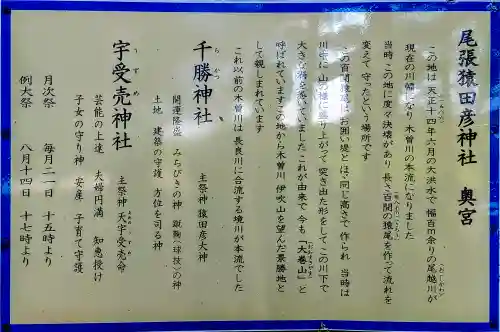 尾張猿田彦神社　奥宮
この地は 天正十四年六月の大洪水で 幅百ｍ余りの尾越川が
現在の川幅になり 木曽川の本流になりました
当時 この地に度々決壊があり 長さ百間の猿尾を作って流れを
変えて 守ったという場所です
この百間猿尾はお囲い堤とほゞ同じ高さで作られ 当時は
川中に 山の様に盛り上がって 突き出た形をしてこの川下で
大きな渦を巻いていました これが由来で 今も 「大巻山」と
呼ばれています この地から木曽川 伊吹山を望んだ景勝地と
して親しまれています
これ以前の木曽川は 長良川に合流する境川が本流でした
千勝神社　主祭神 猿田彦大神
ちかつ
開運隆盛　みちびきの神　蹴鞠（球技）の神
土地　建築の守護　方位を司る神
宇受売神社　主祭神 天宇受売命
うずめ
芸能の上達　夫婦円満　知恵授け
子女の守り神　安産　子育て守護
月次祭　毎月二一日　十五時より
例大祭　八月十四日　十七時より